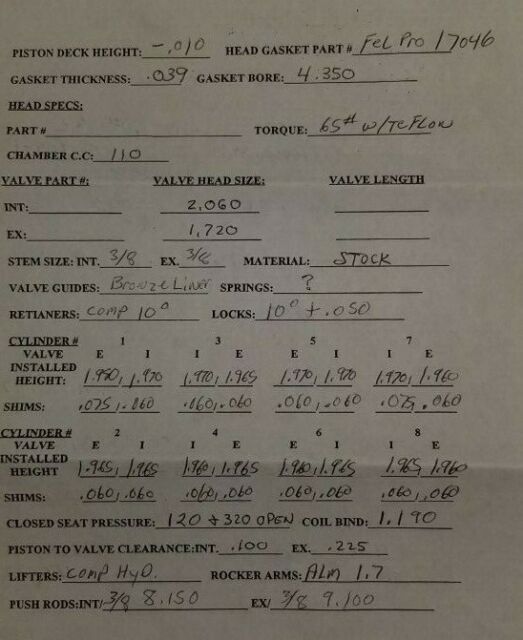 PISTON DECK HEIGHT: -.010 HEAD GASKET PART # FEL PRO 17046
GASKET THICKNESS: .039 GASKET BORE: 4.350
HEAD SPECS:
PART # TORQUE: 65# W/TEFLON
CHAMBER C.C: 110
VALVE PART #: VALVE HEAD SIZE: VALVE LENGTH
INT: 2,060
EX: 1,720
STEM SIZE: INT. 3/8 EX. 3/8 MATERIAL: STOCK
VALVE GUIDES: Bronze Liner SPRINGS: ?
RETIANERS: comp 10° LOCKS: 10° +.050
CYLINDER # 1 3 5 7
VALVE E I I E E I I E
INSTALLED
HEIGHT: 1.950, 1.970 1.970, 1.965 1.970, 1.970 1.970, 1.960
SHIMS: .075, .060 .060, .060 .060, .060 .075, .060
CYLINDER # 2 4 6 8
VALVE E I I E E I I E
INSTALLED
HEIGHT 1.965, 1.965 1.960, 1.965 1.960, 1.965 1.965, 1.960
SHIMS: .060, .060 .060, .060 .060, .060 .060, .060
CLOSED SEAT PRESSURE: 120 + 320 OPEN COIL BIND: 1.190
PISTON TO VALVE CLEARANCE:INT. .100 EX. .225
LIFTERS: comp HYD. ROCKER ARMS: Alm 1.7
PUSH RODS:INT/ 3/8 8.150 EX/ 3/8 9.100